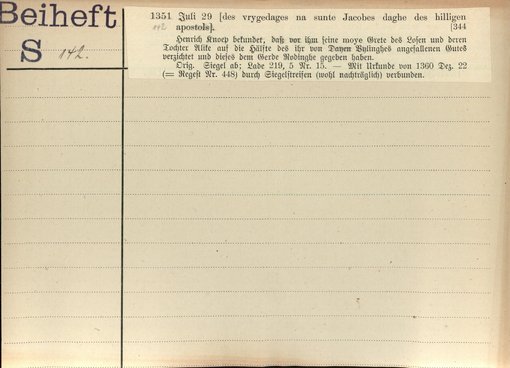 Beiheft
S 142.
1351 Juli 29 [des vrygedages na sunte Jacobes daghe des hilligen
142 apostols]. [344
Henrich Knoep bekundet, daß vor ihm seine moye Grete des Losen und deren
Tochter Alike auf die Hälfte des ihr von Dayen Bylinghes angefallenen Gutes
verzichtet und dieses dem Gerde Rodinghe gegeben haben.
Orig. Siegel ab; Lade 219, 5 Nr. 15. — Mit Urkunde von 1360 Dez. 22
(= Regest Nr. 448) durch Siegelstreifen (wohl nachträglich) verbunden.